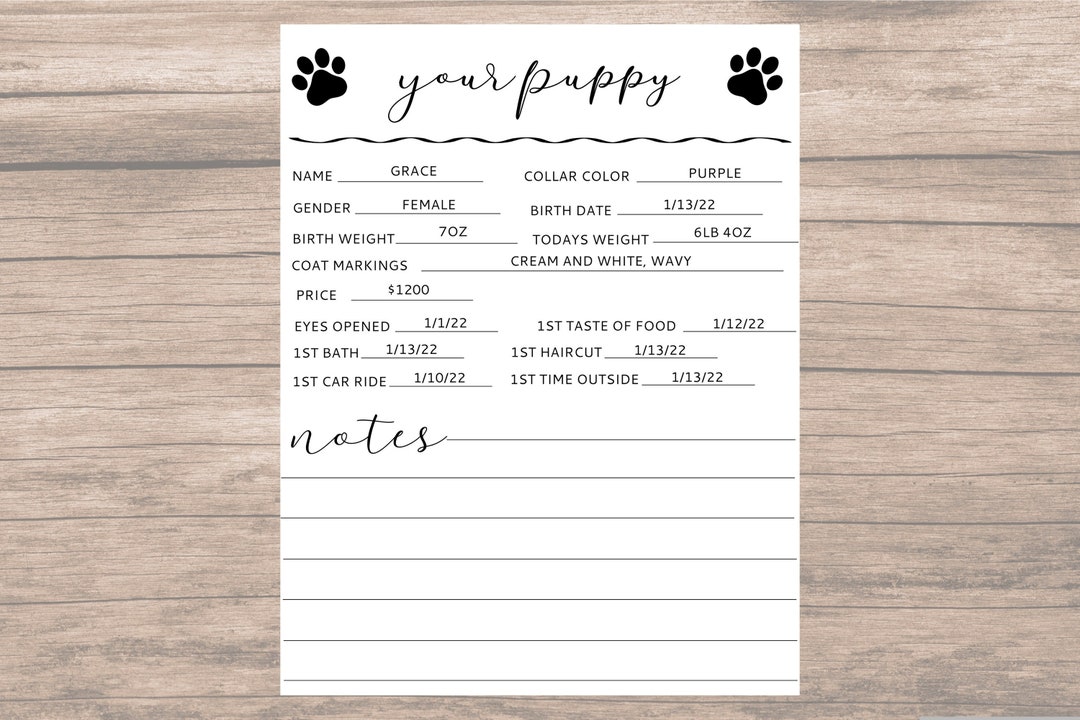 your puppy
NAME GRACE COLLAR COLOR PURPLE
GENDER FEMALE BIRTH DATE 1/13/22
BIRTH WEIGHT 7OZ TODAYS WEIGHT 6LB 4OZ
COAT MARKINGS CREAM AND WHITE, WAVY
PRICE $1200
EYES OPENED 1/1/22 1ST TASTE OF FOOD 1/12/22
1ST BATH 1/13/22 1ST HAIRCUT 1/13/22
1ST CAR RIDE 1/10/22 1ST TIME OUTSIDE 1/13/22
notes